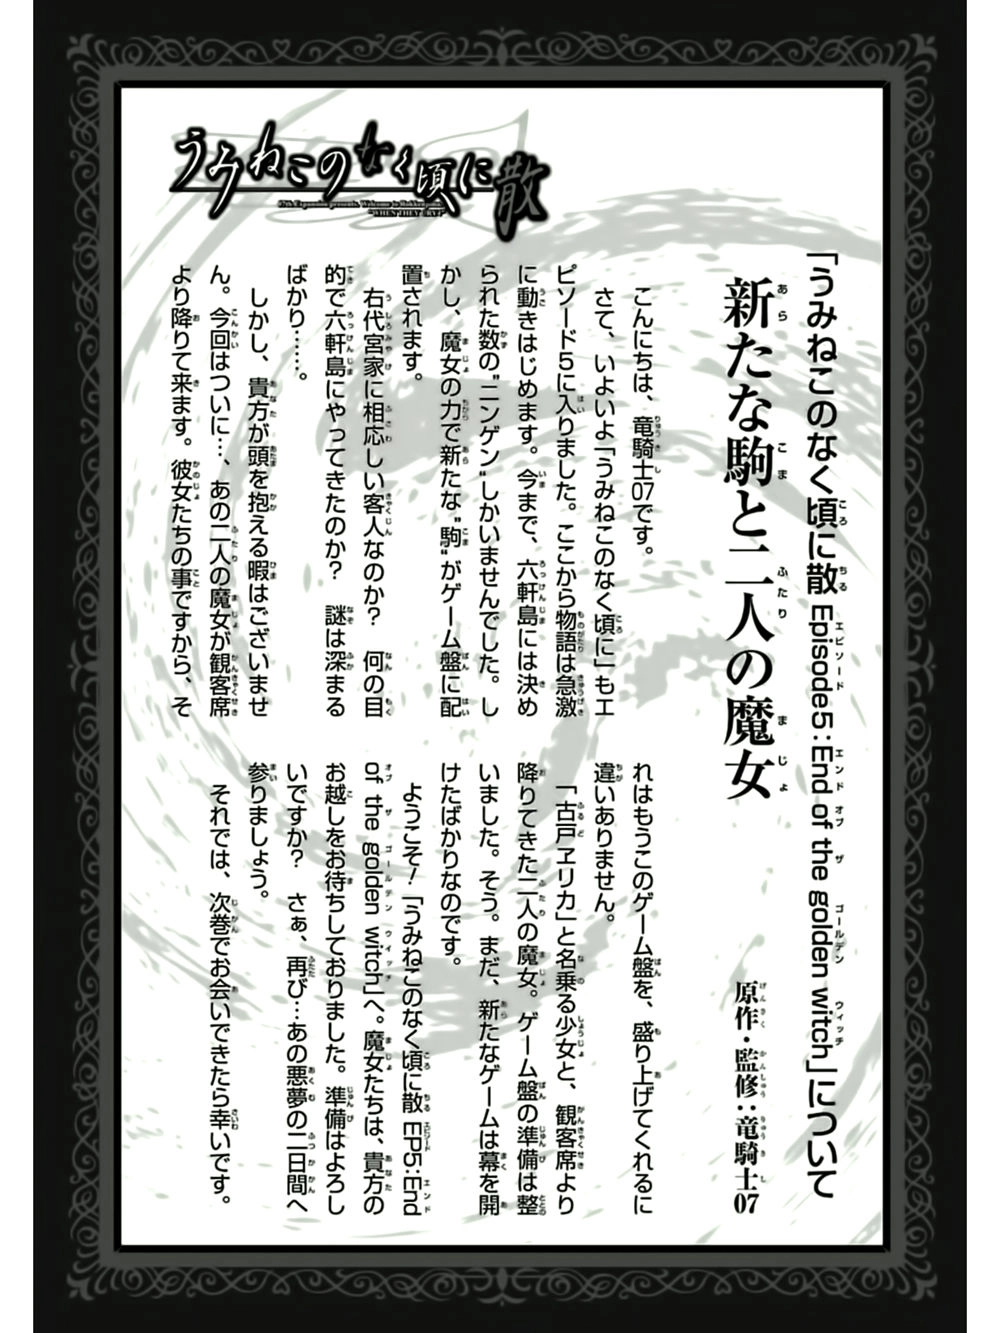 「うみねこのなく頃に散 Episode5：End of the golden witch」について
新たな駒と二人の魔女
原作・監修：竜騎士07
こんにちは、竜騎士07です。
さて、いよいよ「うみねこのなく頃に」もエ
ピソード5に入りました。ここから物語は急激
に動きはじめます。今まで、六軒島には決め
られた数の"ニンゲン"しかいませんでした。し
かし、魔女の力で新たな"駒"がゲーム盤に配
置されます。
右代宮家に相応しい客人なのか？　何の目
的で六軒島にやってきたのか？　謎は深まる
ばかり……。
しかし、貴方が頭を抱える暇はございませ
ん。今回はついに…、あの二人の魔女が観客席
より降りて来ます。彼女たちの事ですから、そ
れはもうこのゲーム盤を、盛り上げてくれるに
違いありません。
「古戸ヱリカ」と名乗る少女と、観客席より
降りてきた二人の魔女。ゲーム盤の準備は整
いました。そう。まだ、新たなゲームは幕を開
けたばかりなのです。
ようこそ！「うみねこのなく頃に散 EP5：End
of the golden witch」へ。魔女たちは、貴方の
お越しをお待ちしておりました。準備はよろし
いですか？　さぁ、再び…あの悪夢の二日間へ
参りましょう。
それでは、次巻でお会いできたら幸いです。
うみねこのなく頃に散
07th Expansion presents. Welcome to Rokkenjima.
"WHEN THEY CRY 4"